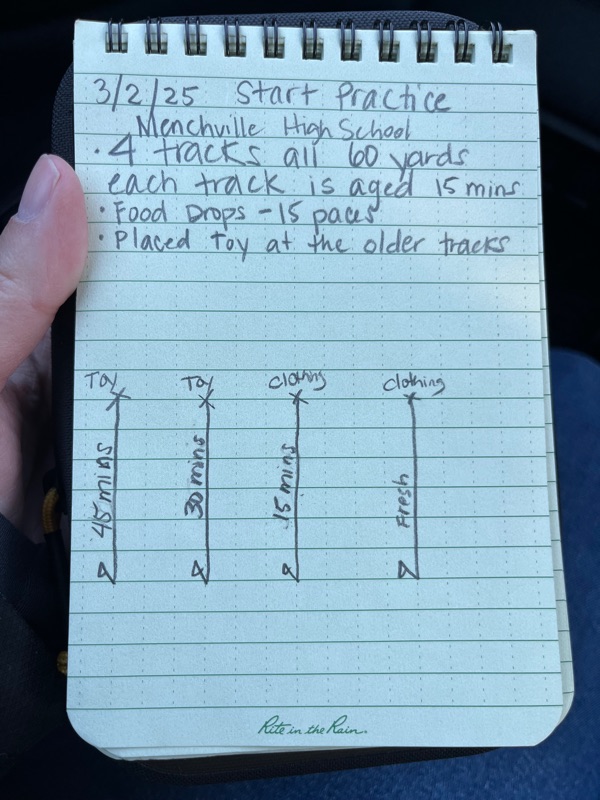 3/2/25 Start Practice
Menchville High School
• 4 tracks all 60 yards
each track is aged 15 mins
• Food Drops - 15 paces
• Placed Toy at the older tracks
Toy Toy Clothing Clothing
45 mins 30 mins 15 mins Fresh
Rite in the Rain